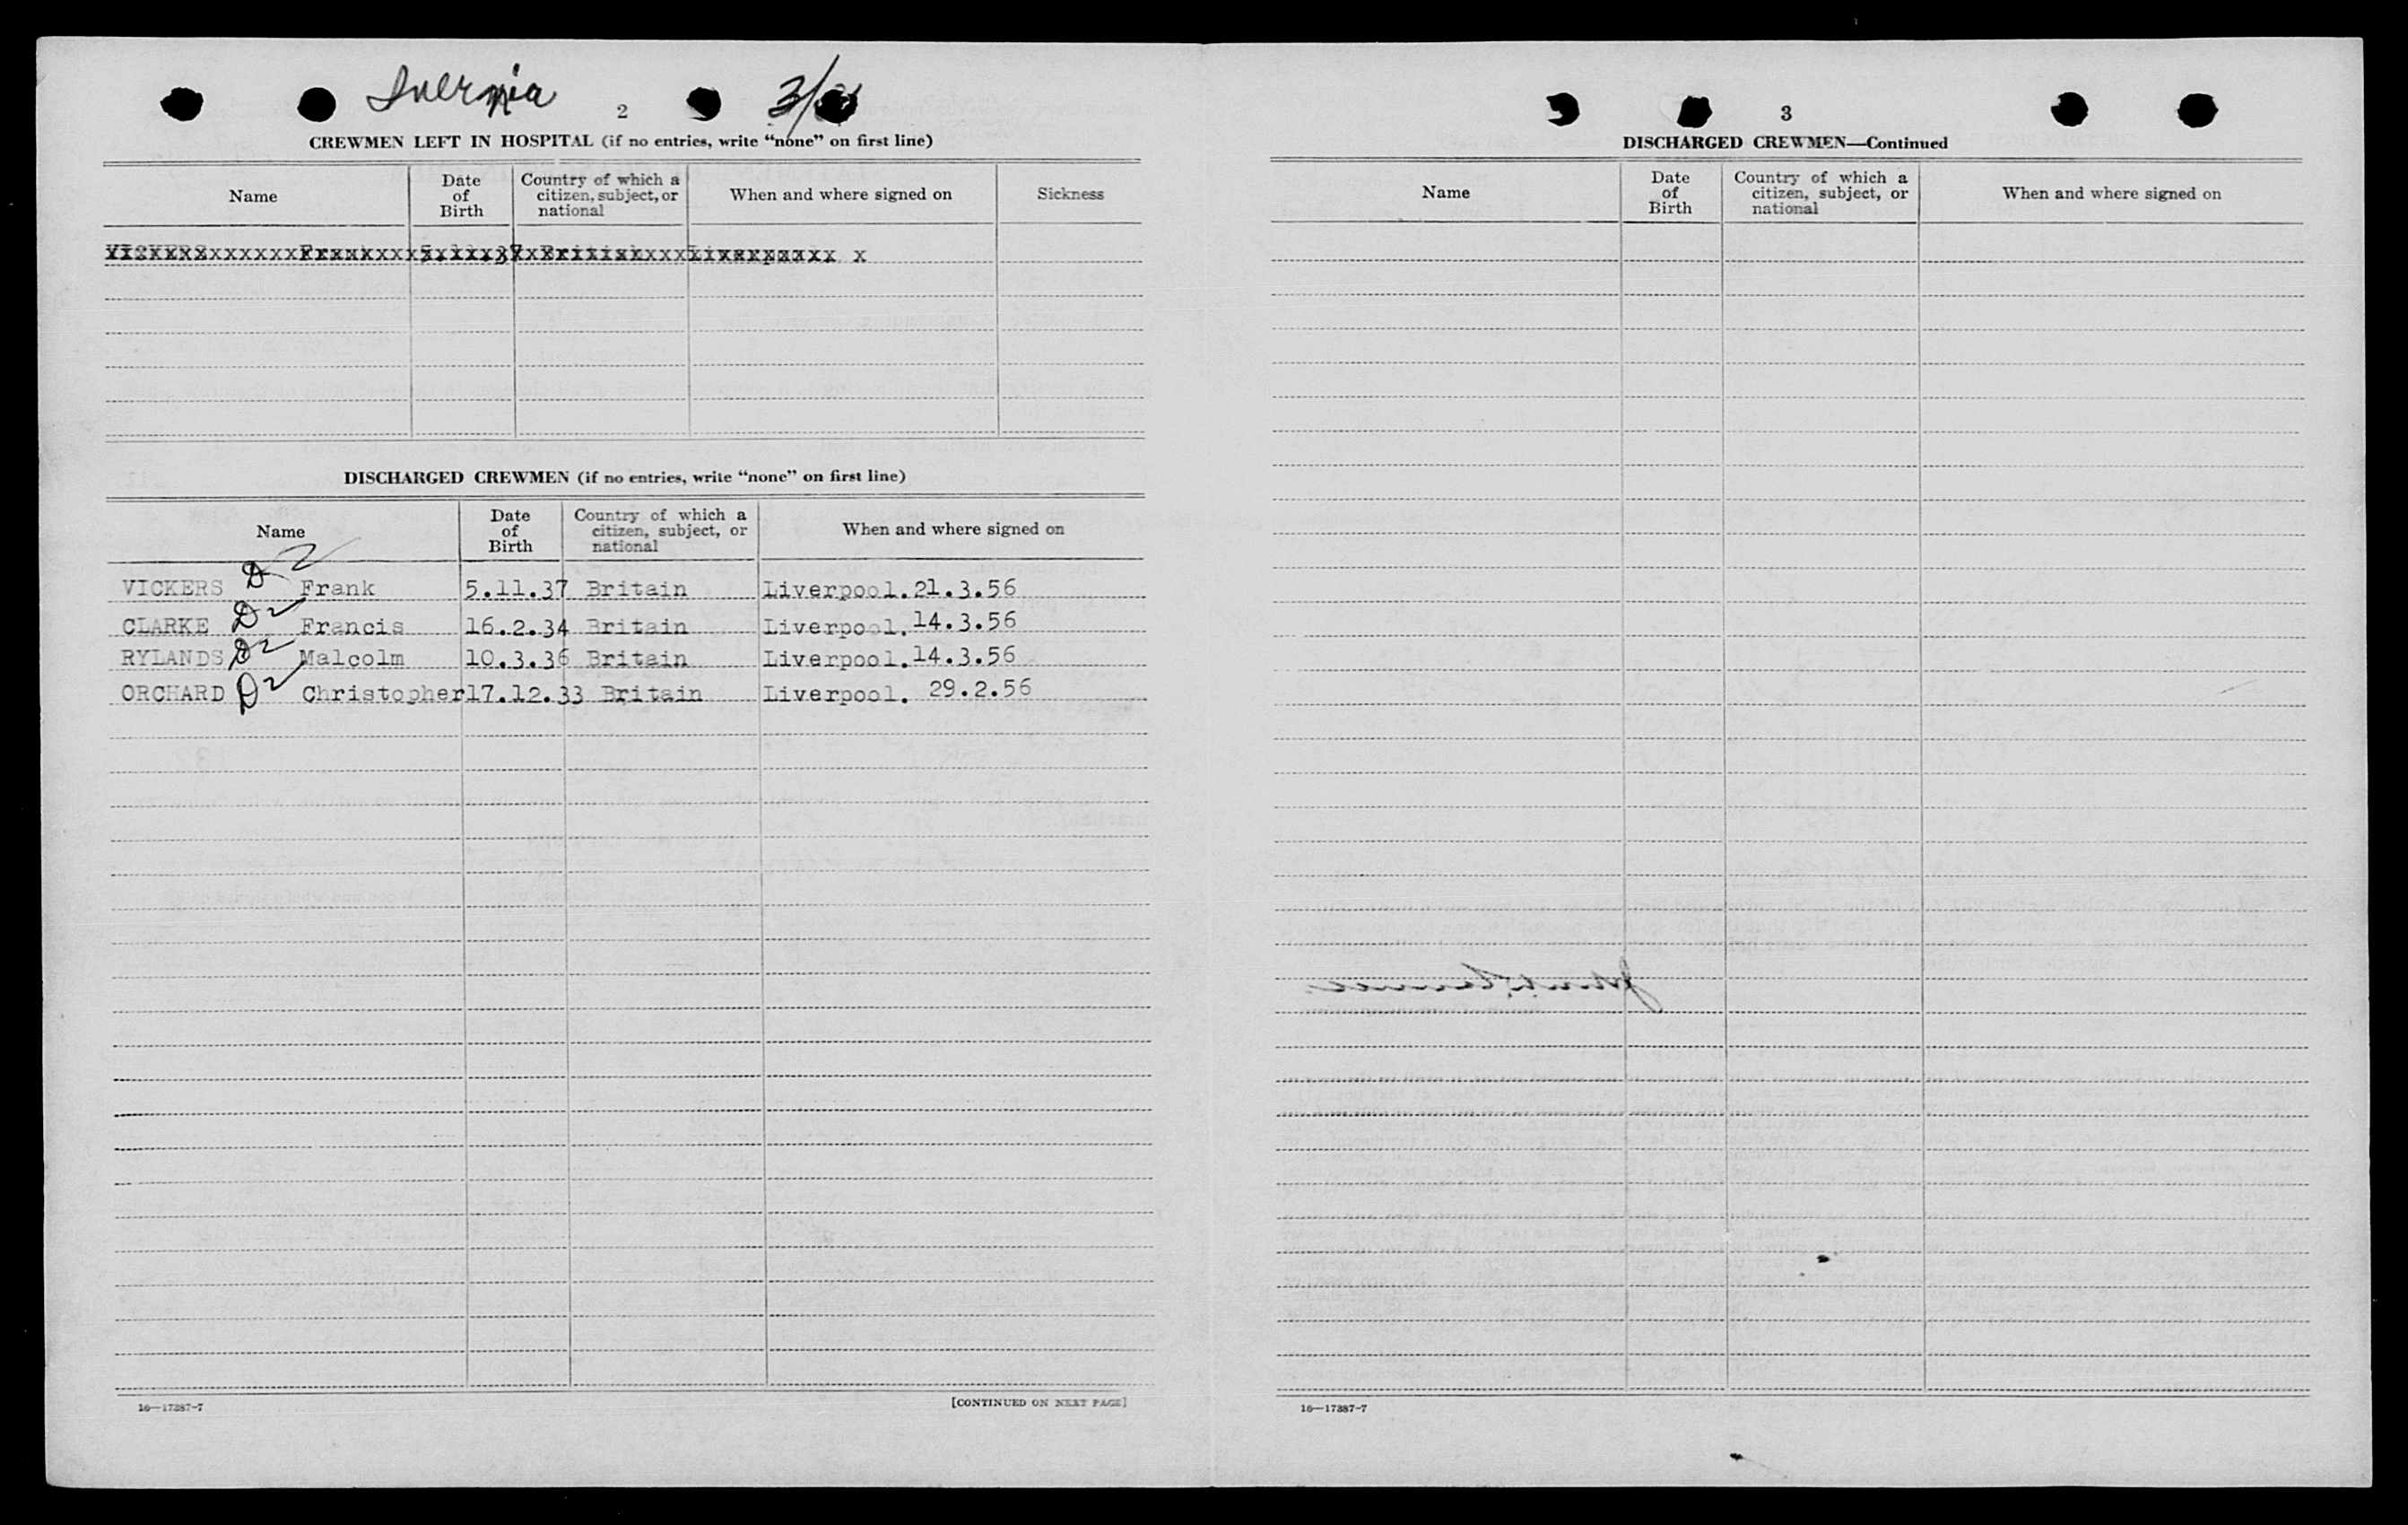 Ivernia 2 3/
CREWMEN LEFT IN HOSPITAL (if no entries, write “none” on first line)
Name
Date of Birth
Country of which a citizen, subject, or national
When and where signed on
Sickness
VICKERS Frank 5.11.37 British Liverpool
DISCHARGED CREWMEN (if no entries, write “none” on first line)
Name
Date of Birth
Country of which a citizen, subject, or national
When and where signed on
VICKERS D2 Frank 5.11.37 Britain Liverpool. 21.3.56
CLARKE D2 Francis 16.2.34 Britain Liverpool. 14.3.56
RYLANDS D2 Malcolm 10.3.36 Britain Liverpool. 14.3.56
ORCHARD D2 Christopher 17.12.33 Britain Liverpool. 29.2.56
16—17387-7
[CONTINUED ON NEXT PAGE]
3
DISCHARGED CREWMEN—Continued
Name
Date of Birth
Country of which a citizen, subject, or national
When and where signed on
16—17387-7